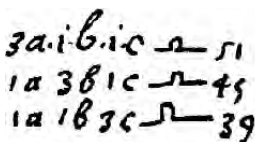 3a.i.b.i.c 51
1a 3b 1c 45
1a 1b 3c 39